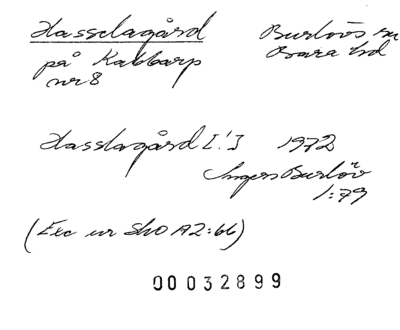 Hasslagård Burlövs sn
på Kabbarp Bara hd
nr 8
Hasslagård [!] 1972
Ingers Burlöv
1:79
(Exc ur SkO A2:66)
00032899